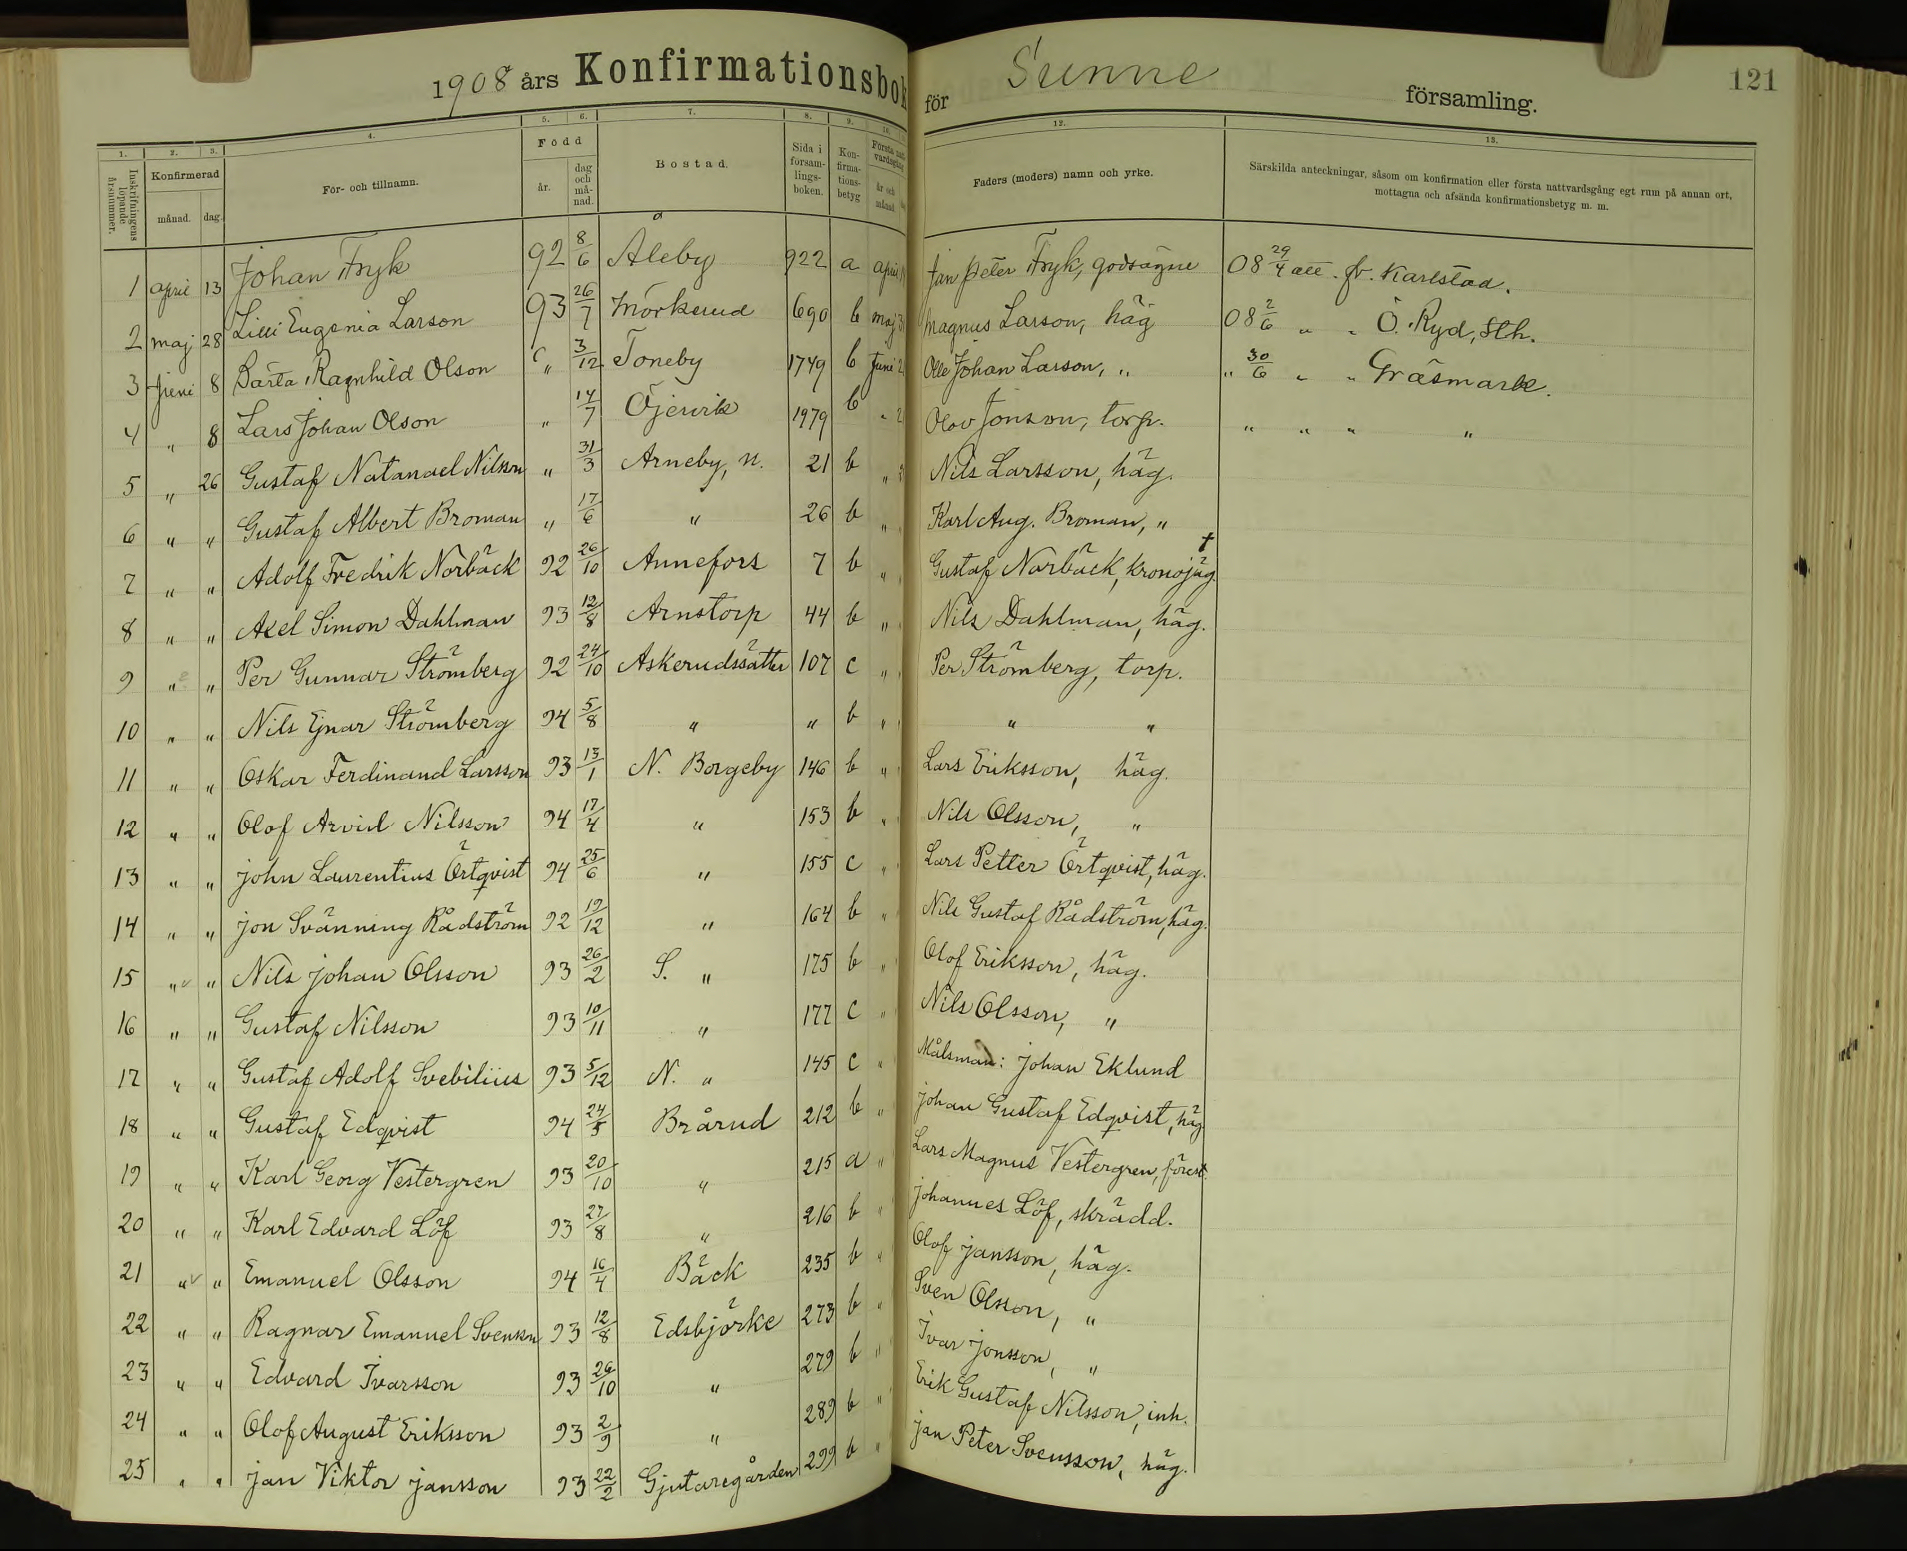 1908 års Konfirmationsbok för Sunne församling. 121
1. 2. 3. 4. 5. 6. 7. 8. 9. 10. 12. 13.
Inskrifningens löpande årsnummer. Konfirmerad månad. dag. För- och tillnamn. Född år. dag och må-nad. Bostad. Sida i försam-lings-boken. Kon-firma-tions-betyg Första nattvardsgång år och månad Faders (moders) namn och yrke. Särskilda anteckningar, såsom om konfirmation eller första nattvardsgång egt rum på annan ort, mottagna och afsända konfirmationsbetyg m. m.
1 april 13 Johan Fryk 92 8/6 Åleby 922 a april Jan Peter Fryk, godsägne 08 29/4 att. fr. Karlstad.
2 maj 28 Lilli Eugenia Larson 93 26/7 Mörkerud 690 b maj Magnus Larson, häg 08 2/6 " " Ö. Ryd, Sth.
3 Juni 8 Märta Ragnhild Olson " 3/12 Toneby 1749 b Juni Olle Johan Larson, " " 30/6 " " Gräsmark.
4 " 8 Lars Johan Olson " 14/7 Öjervik 1979 b " Olov Jonson, torp. " " " "
5 " 26 Gustaf Natanael Nilsson " 31/3 Arneby, n. 21 b " Nils Larsson, häg.
6 " " Gustaf Albert Broman " 17/6 " 26 b " Karl Aug. Broman, "
7 " " Adolf Fredrik Norbäck 92 26/10 Annefors 7 b " Gustaf Norbäck, kronojäg †
8 " " Axel Simon Dahlman 93 12/8 Arnstorp 44 b " Nils Dahlman, häg.
9 " " Per Gunnar Strömberg 92 24/10 Askerudssätter 107 c " Per Strömberg, torp.
10 " " Nils Ejnar Strömberg 94 5/8 " " b " " "
11 " " Oskar Ferdinand Larsson 93 13/1 N. Borgeby 146 b " Lars Eriksson, häg.
12 " " Olof Arvid Nilsson 94 17/4 " 153 b " Nils Olsson, "
13 " " John Laurentius Örtqvist 94 25/6 " 155 c " Lars Petter Örtqvist, häg.
14 " " Jon Svänning Rådström 92 19/12 " 164 b " Nils Gustaf Rådström, häg.
15 " " Nils Johan Olsson 93 26/2 S. " 175 b " Olof Eriksson, häg.
16 " " Gustaf Nilsson 93 10/11 " 177 c " Nils Olsson, "
17 " " Gustaf Adolf Svebilius 93 5/12 N. " 145 c " Målsman: Johan Eklund
18 " " Gustaf Edqvist 94 24/5 Brårud 212 b " Johan Gustaf Edqvist, häg
19 " " Karl Georg Vestergren 93 20/10 " 215 a " Lars Magnus Vestergren, förest.
20 " " Karl Edvard Löf 93 27/8 " 216 b " Johannes Löf, skrädd.
21 " " Emanuel Olsson 94 16/4 Bäck 235 b " Olof Jansson, häg.
22 " " Ragnar Emanuel Svensson 93 12/8 Edsbjörke 273 b " Sven Olsson, "
23 " " Edvard Ivarsson 93 26/10 " 279 b " Ivar Jonsson, "
24 " " Olof August Eriksson 93 2/9 " 289 b " Erik Gustaf Nilsson, inh.
25 " " Jan Viktor Jansson 93 22/2 Gjutaregården 299 b " Jan Peter Svensson, häg.